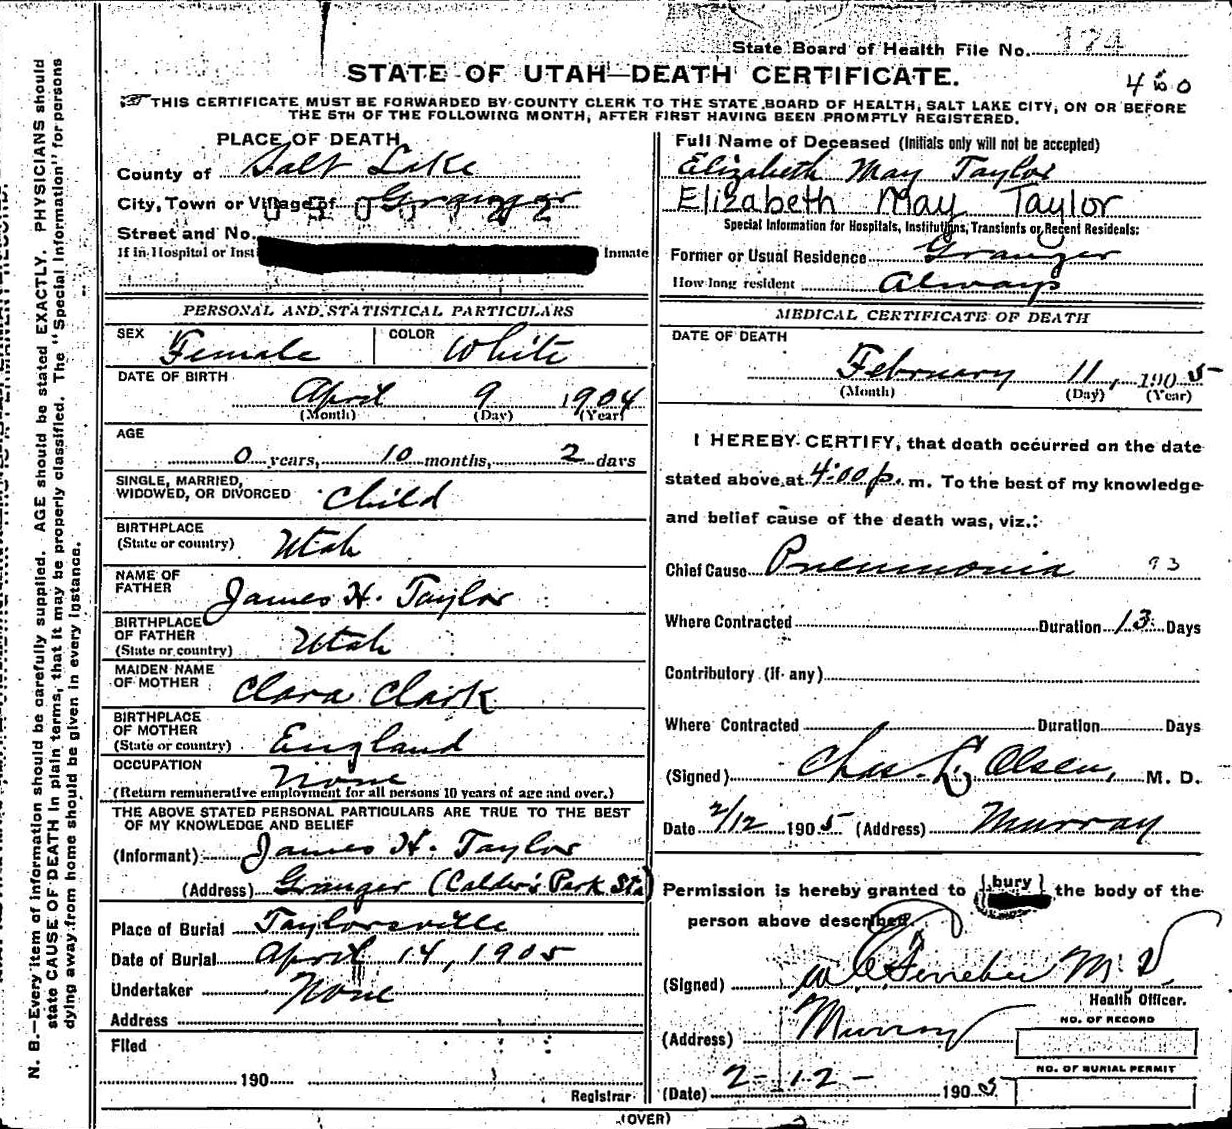 State Board of Health File No. 174
STATE OF UTAH—DEATH CERTIFICATE.
450
THIS CERTIFICATE MUST BE FORWARDED BY COUNTY CLERK TO THE STATE BOARD OF HEALTH, SALT LAKE CITY, ON OR BEFORE
THE 5TH OF THE FOLLOWING MONTH, AFTER FIRST HAVING BEEN PROMPTLY REGISTERED.
PLACE OF DEATH
County of Salt Lake
City, Town or Village of Granger
Street and No.
If in Hospital or Inst Inmate
PERSONAL AND STATISTICAL PARTICULARS
SEX Female COLOR White
DATE OF BIRTH
April 9 1904
(Month) (Day) (Year)
AGE
0 years, 10 months, 2 days
SINGLE, MARRIED,
WIDOWED, OR DIVORCED Child
BIRTHPLACE
(State or country) Utah
NAME OF
FATHER James H. Taylor
BIRTHPLACE
OF FATHER
(State or country) Utah
MAIDEN NAME
OF MOTHER Clara Clark
BIRTHPLACE
OF MOTHER
(State or country) England
OCCUPATION None
(Return remunerative employment for all persons 10 years of age and over.)
THE ABOVE STATED PERSONAL PARTICULARS ARE TRUE TO THE BEST
OF MY KNOWLEDGE AND BELIEF
(Informant) James H. Taylor
(Address) Granger (Calder's Park Sta.)
Place of Burial Taylorsville
Date of Burial April 14, 1905
Undertaker None
Address
Filed
190
Registrar
Full Name of Deceased (Initials only will not be accepted)
Elizabeth May Taylor
Elizabeth May Taylor
Special Information for Hospitals, Institutions, Transients or Recent Residents:
Former or Usual Residence Granger
How long resident Always
MEDICAL CERTIFICATE OF DEATH
DATE OF DEATH
February 11, 1905
(Month) (Day) (Year)
I HEREBY CERTIFY, that death occurred on the date
stated above, at 4:00 p. m. To the best of my knowledge
and belief cause of the death was, viz.:
Chief Cause Pneumonia 93
Where Contracted Duration 13 Days
Contributory (if any)
Where Contracted Duration Days
(Signed) Chas. L. Olsen, M. D.
Date 2/12 1905 (Address) Murray
Permission is hereby granted to {bury} the body of the
person above described.
(Signed) M D
Health Officer.
(Address) Murray
NO. OF RECORD
NO. OF BURIAL PERMIT
(Date) 2-12- 1905
(OVER)
N. B.—Every item of information should be carefully supplied. AGE should be stated EXACTLY. PHYSICIANS should
state CAUSE OF DEATH in plain terms, that it may be properly classified. The "Special Information" for persons
dying away from home should be given in every instance.